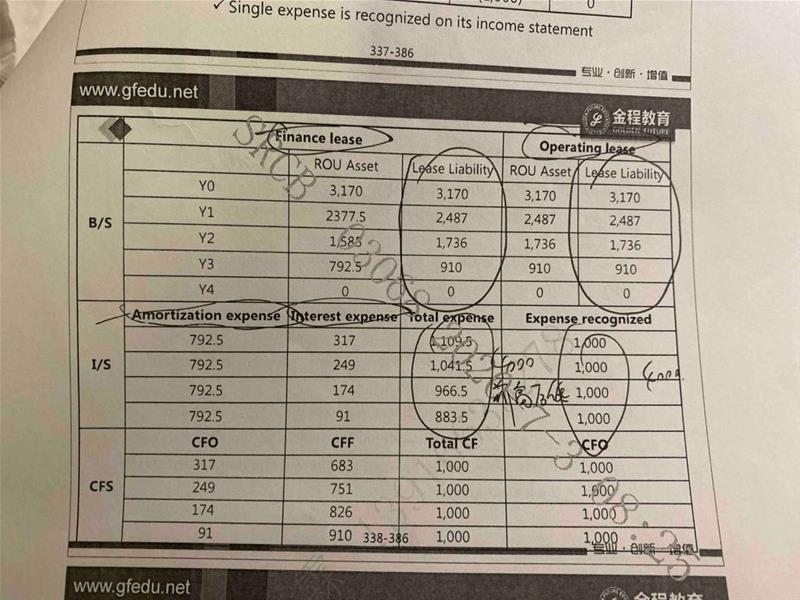 ✓ Single expense is recognized on its income statement
337-386
专业·创新·增值
www.gfedu.net
金程教育
GOLDEN FUTURE
Finance lease Operating lease
ROU Asset Lease Liability ROU Asset Lease Liability
B/S
Y0 3,170 3,170 3,170 3,170
Y1 2377.5 2,487 2,487 2,487
Y2 1,585 1,736 1,736 1,736
Y3 792.5 910 910 910
Y4 0 0 0 0
Amortization expense Interest expense Total expense Expense recognized
I/S
792.5 317 1,109.5 1,000
792.5 249 1,041.5 4000 1,000 4000
792.5 174 966.5 1,000
792.5 91 883.5 1,000
CFO CFF Total CF CFO
CFS
317 683 1,000 1,000
249 751 1,000 1,000
174 826 1,000 1,000
91 910 1,000 1,000
338-386
专业·创新·增值
www.gfedu.net
金程教育
SRCB
08:25